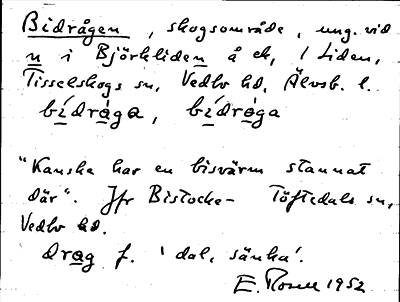 Bidrågen, skogsområde, ung. vid
n i Björkliden å ek, 1 Liden,
Tisselskogs sn, Vedbo hd, Älvsb. l.
bídråga, bídråga
"Kanske har en bisvärm stannat
där". Jfr Bistocke- Töftedals sn,
Vedbo hd.
drag f. 'dal, sänka'.
E. 1952